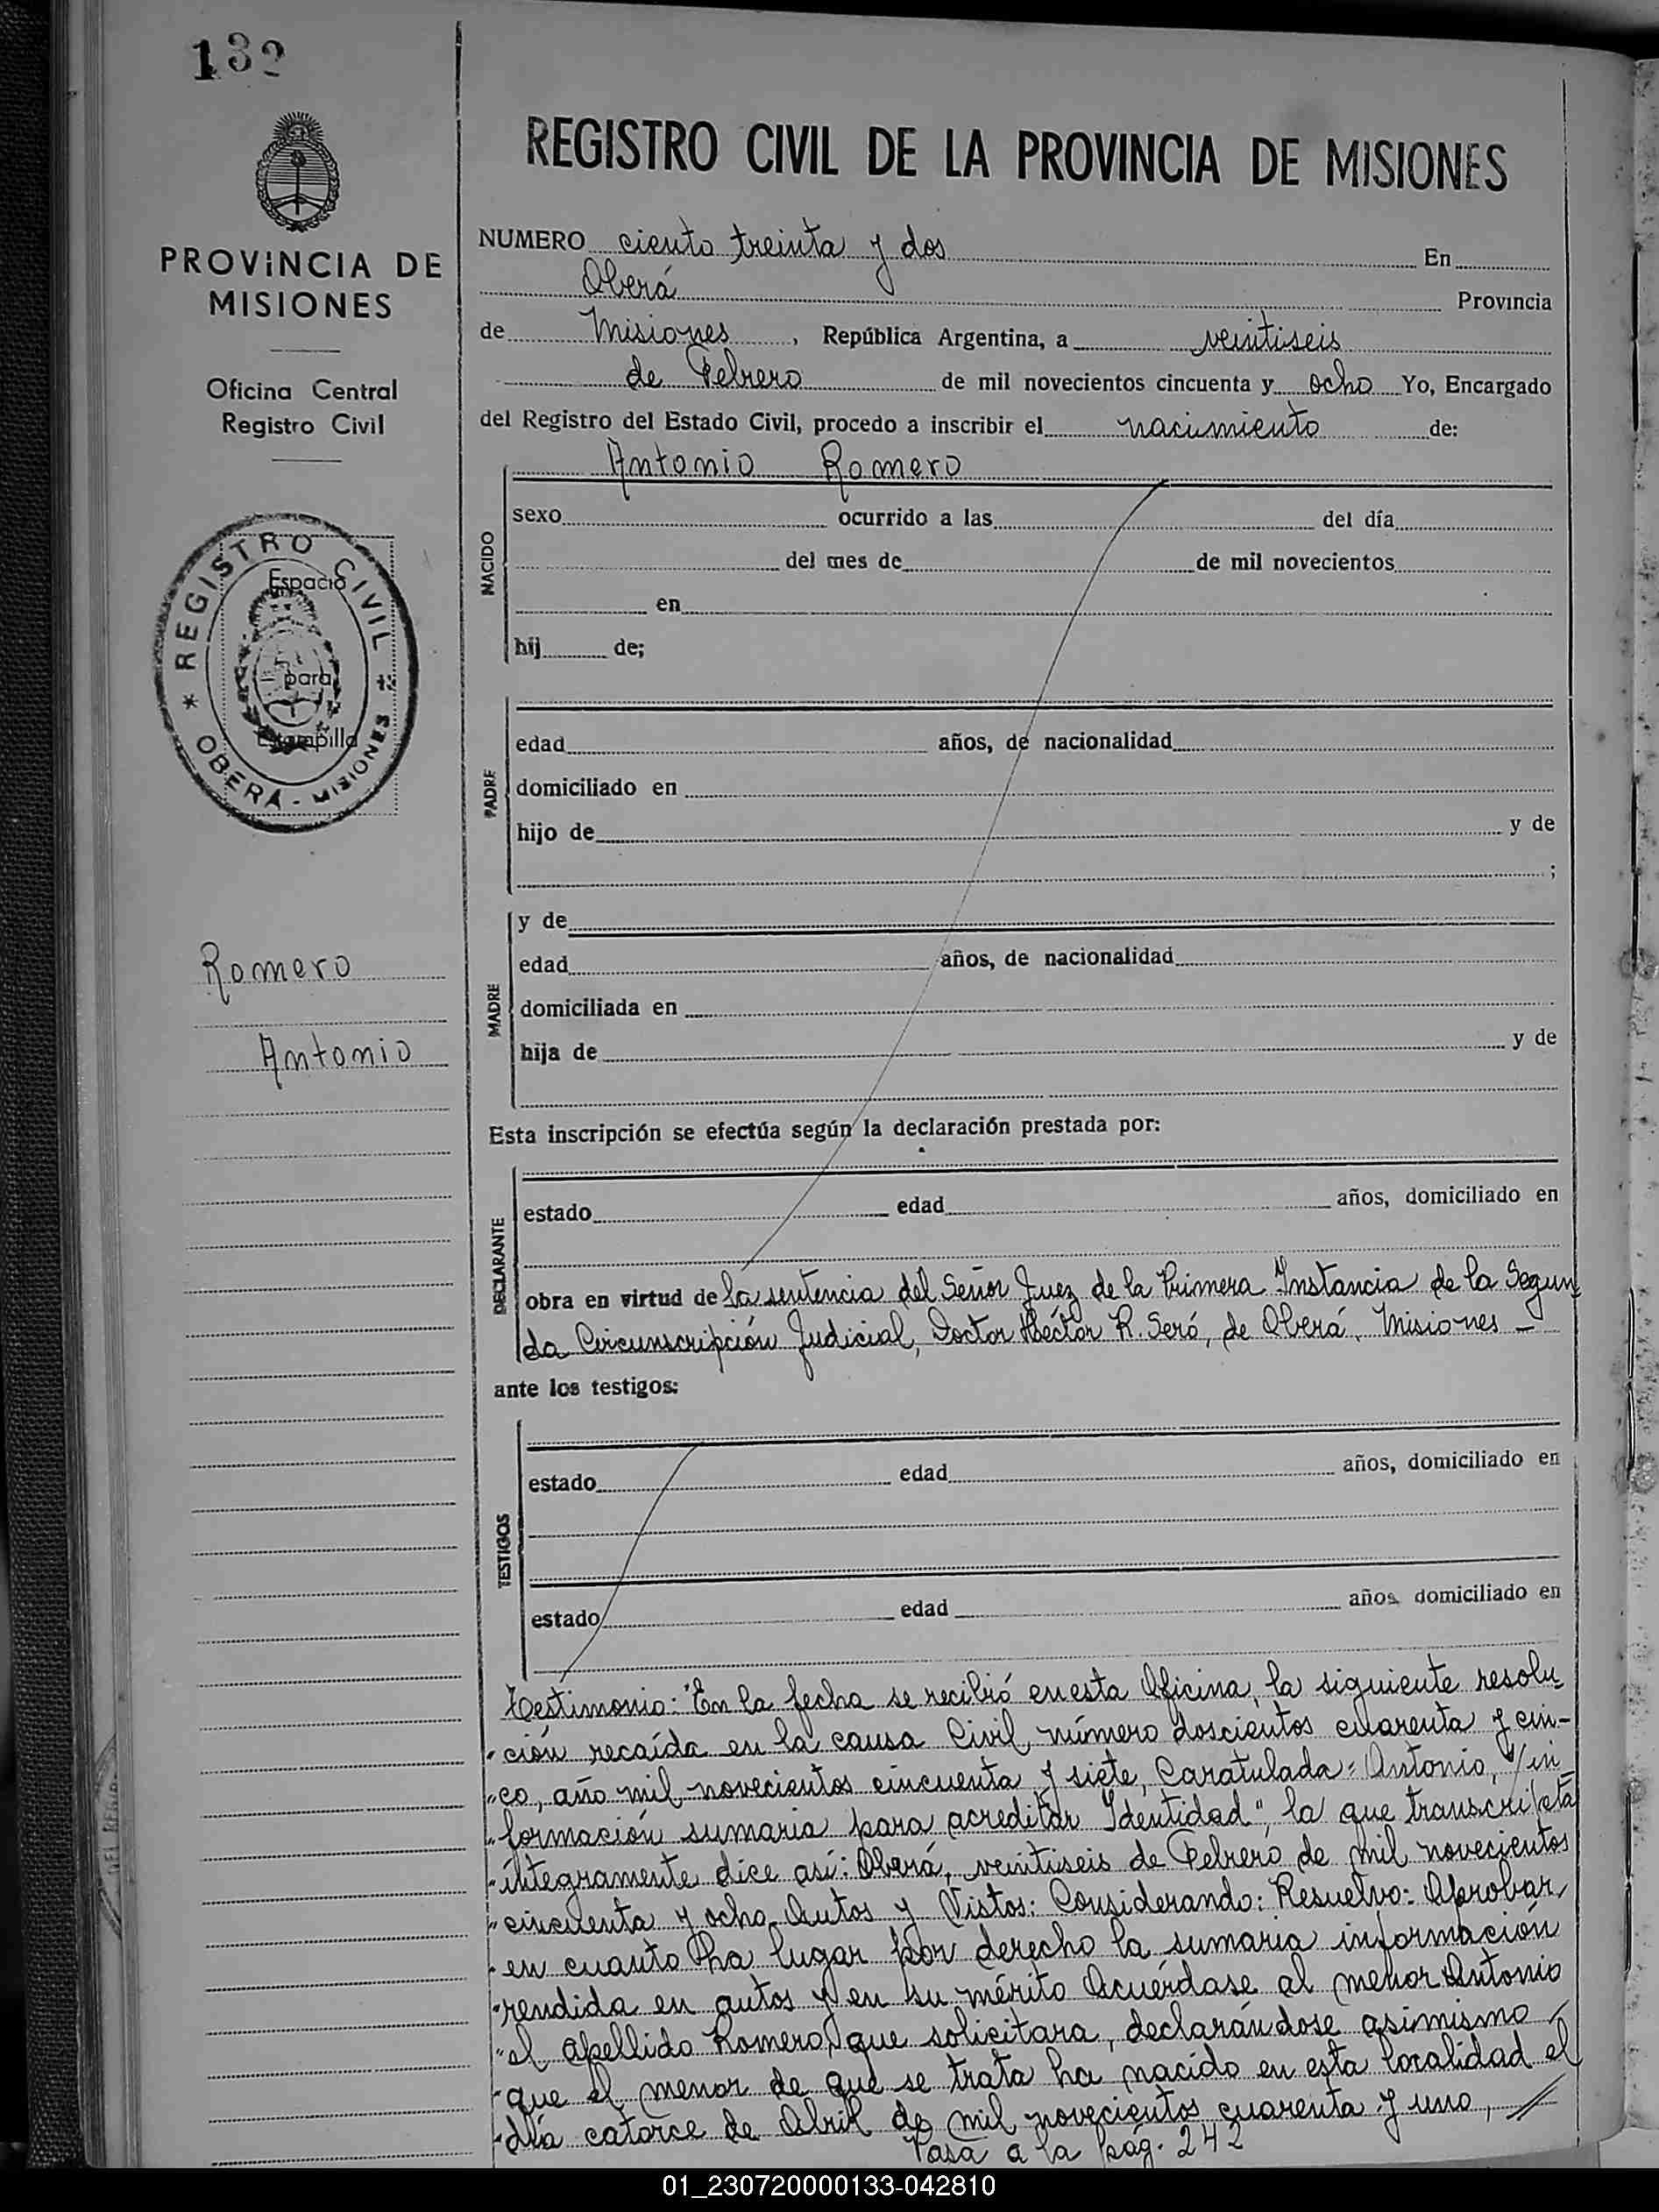 132
PROVINCIA DE
MISIONES
Oficina Central
Registro Civil
* REGISTRO CIVIL *
OBERA - MISIONES
Espacio
para
Estampilla
Romero
Antonio
REGISTRO CIVIL DE LA PROVINCIA DE MISIONES
NUMERO ciento treinta y dos En
Oberá Provincia
de Misiones, República Argentina, a veintiseis
de Febrero de mil novecientos cincuenta y ocho Yo, Encargado
del Registro del Estado Civil, procedo a inscribir el nacimiento de:
Antonio Romero
NACIDO
sexo ocurrido a las del día
del mes de de mil novecientos
en
hij de;
PADRE
edad años, de nacionalidad
domiciliado en
hijo de y de
;
MADRE
y de
edad años, de nacionalidad
domiciliada en
hija de y de
Esta inscripción se efectúa según la declaración prestada por:
DECLARANTE
estado edad años, domiciliado en
obra en virtud de la sentencia del Señor Juez de la Primera Instancia de la Segun
da Circunscripción Judicial, Doctor Héctor R. Seró, de Oberá, Misiones -
ante los testigos:
TESTIGOS
estado edad años, domiciliado en
estado edad años, domiciliado en
Testimonio: "En la fecha se recibió en esta Oficina, la siguiente resolu
"ción recaída en la causa Civil, número doscientos cuarenta y cin-
"co, año mil novecientos cincuenta y siete, Caratulada: Antonio, s/in
"formación sumaria para acreditar Identidad", la que transcripta
"íntegramente dice así: Oberá, veintiseis de Febrero de mil novecientos
"cincuenta y ocho. Autos y Vistos: Considerando: Resuelvo: Aprobar
"en cuanto ha lugar por derecho la sumaria información
"rendida en autos y en su mérito Acuérdase al menor Antonio
"el apellido Romero, que solicitara, declarándose asimismo
"que el menor de que se trata ha nacido en esta localidad el
"día catorce de Abril de mil novecientos cuarenta y uno, //
Pasa a la pág. 242
01_230720000133-042810